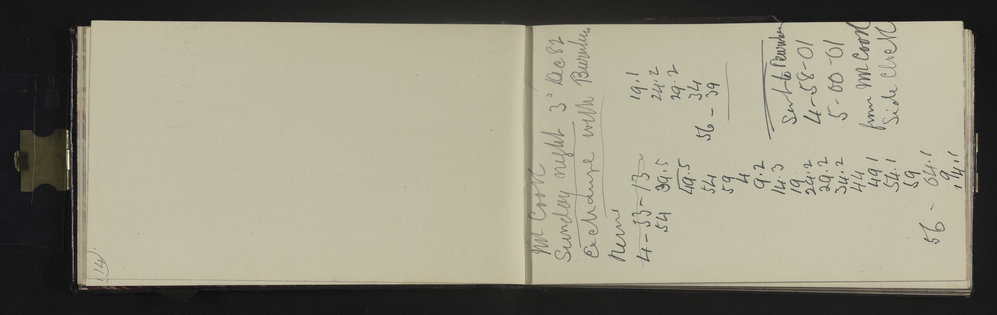 14
Mr Cook
Sunday night 3rd Dec 82
Exchange with Burnham
Rems
4-53-13
54 39.5
49.5
54
59
4
9.2
14.3
19
24.2
29.2
34.2
44
49.1
54.1
59
56- 04.1
9
14.1
19.1
24.2
29.2
34
56-39
Sent to Burnham
4-58-01
5-00-01
from Mr Cook
Side clock